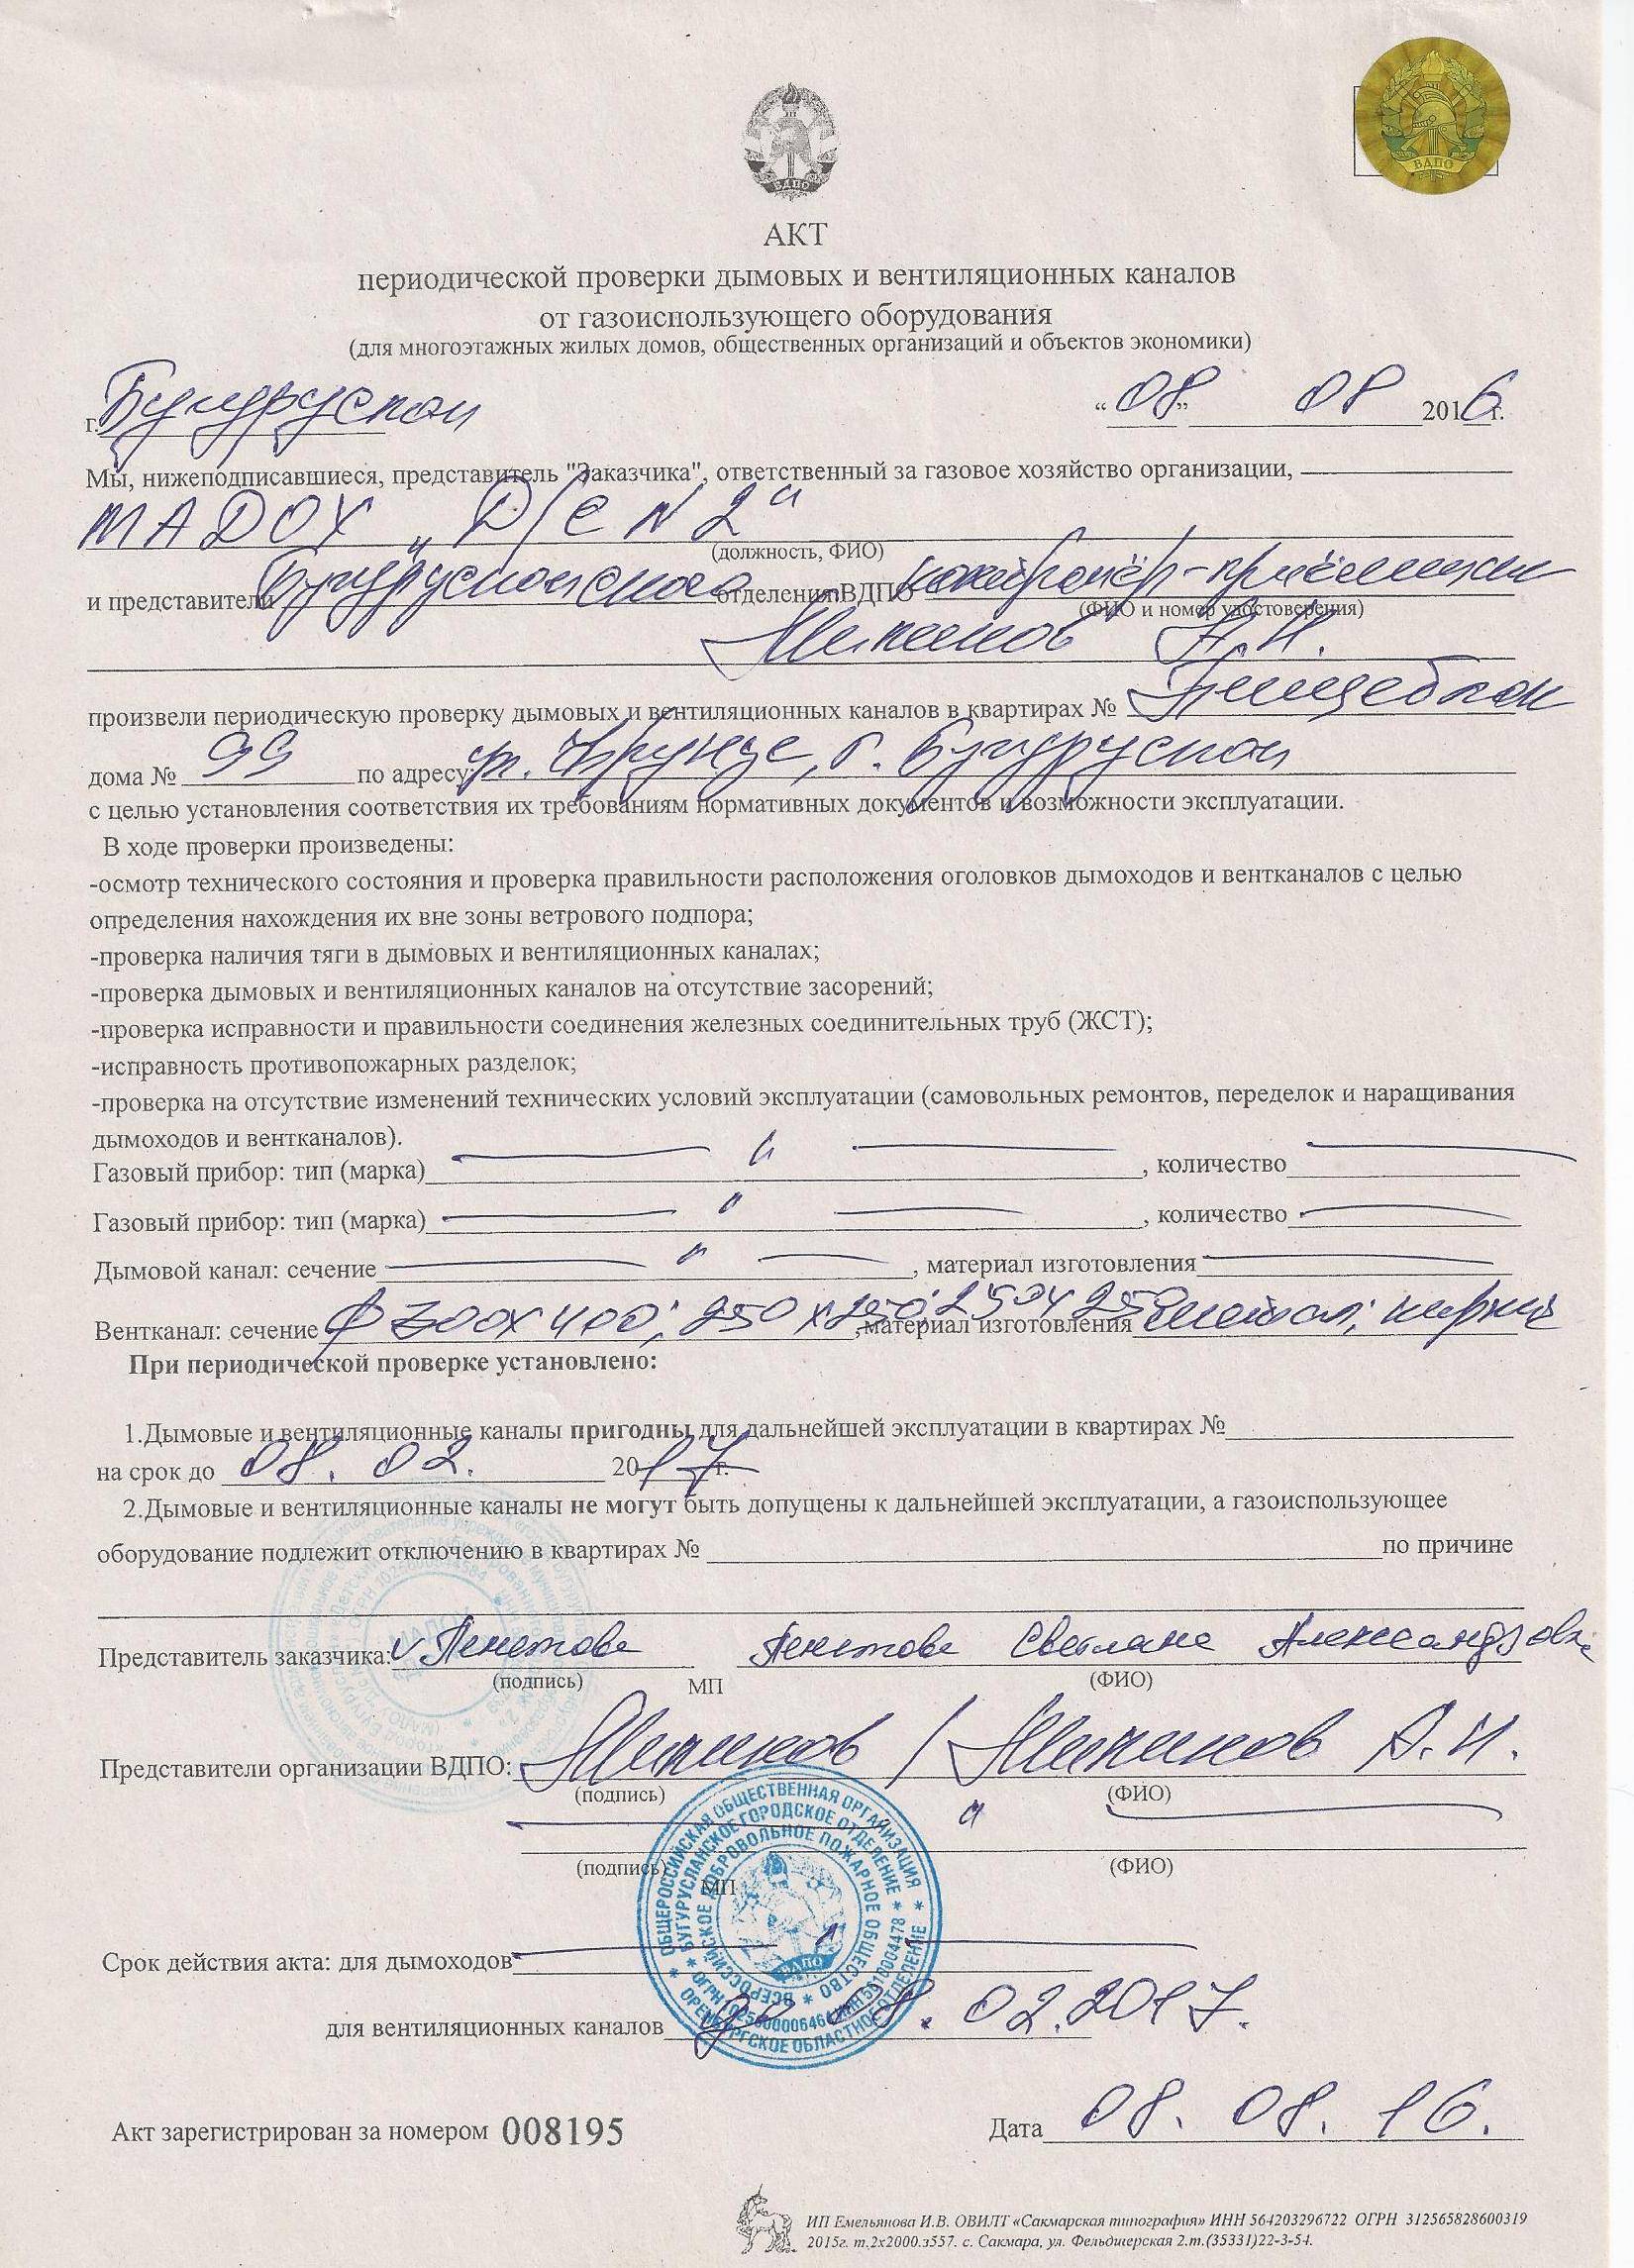 ВДПО
ВДПО
АКТ
периодической проверки дымовых и вентиляционных каналов
от газоиспользующего оборудования
(для многоэтажных жилых домов, общественных организаций и объектов экономики)
г. Бугуруслан “08” 08 2016 г.
Мы, нижеподписавшиеся, представитель "Заказчика", ответственный за газовое хозяйство организации,
МАДОУ „Д/С N 2“
(должность, ФИО)
и представители Бугурусланского отделения ВДПО контролёр-приёмщик
(ФИО и номер удостоверения)
А.И.
произвели периодическую проверку дымовых и вентиляционных каналов в квартирах № Пищеблок
дома № 99 по адресу: ул. Фрунзе, г. Бугуруслан
с целью установления соответствия их требованиям нормативных документов и возможности эксплуатации.
В ходе проверки произведены:
-осмотр технического состояния и проверка правильности расположения оголовков дымоходов и вентканалов с целью
определения нахождения их вне зоны ветрового подпора;
-проверка наличия тяги в дымовых и вентиляционных каналах;
-проверка дымовых и вентиляционных каналов на отсутствие засорений;
-проверка исправности и правильности соединения железных соединительных труб (ЖСТ);
-исправность противопожарных разделок;
-проверка на отсутствие изменений технических условий эксплуатации (самовольных ремонтов, переделок и наращивания
дымоходов и вентканалов).
Газовый прибор: тип (марка) — " — , количество —
Газовый прибор: тип (марка) — " — , количество —
Дымовой канал: сечение — " — , материал изготовления —
Вентканал: сечение Ф 300х400; 250х250; , материал изготовления металл; кирпич
При периодической проверке установлено:
1.Дымовые и вентиляционные каналы пригодны для дальнейшей эксплуатации в квартирах №
на срок до 08. 02. 2017 г.
2.Дымовые и вентиляционные каналы не могут быть допущены к дальнейшей эксплуатации, а газоиспользующее
оборудование подлежит отключению в квартирах № по причине
Представитель заказчика: Светлана Александровна
(подпись) МП (ФИО)
Представители организации ВДПО: / А.И.
(подпись) (ФИО)
(подпись) (ФИО)
МП
ОБЩЕРОССИЙСКАЯ ОБЩЕСТВЕННАЯ ОРГАНИЗАЦИЯ * ОРЕНБУРГСКОЕ ОБЛАСТНОЕ ОТДЕЛЕНИЕ *
БУГУРУСЛАНСКОЕ ГОРОДСКОЕ ОТДЕЛЕНИЕ *
ВСЕРОССИЙСКОЕ ДОБРОВОЛЬНОЕ ПОЖАРНОЕ ОБЩЕСТВО *
ВДПО
Срок действия акта: для дымоходов — " —
для вентиляционных каналов до 08. 02. 2017.
Акт зарегистрирован за номером 008195 Дата 08. 08. 16.
ИП Емельянова И.В. ОВИЛТ «Сакмарская типография» ИНН 564203296722 ОГРН 312565828600319
2015г. т.2х2000.з557. с. Сакмара, ул. Фельдшерская 2.т.(35331)22-3-54.